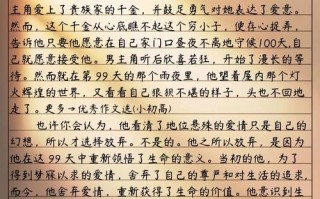 主角爱上了贵族家的千金，并鼓足勇气对她表达了爱意。
然而，这个千金从心底瞧不起这个穷小子，便存心捉弄，
告诉他只要他愿意在自己家门口昼夜不离地守候100天，自
己就愿意接受他。男主角听后欣喜若狂，开始了漫长的等
待。然而就在第99天的那个雨夜里，他望着屋内那个灯
火辉煌的世界，又看看自己狼狈不堪的样子，头也不回地
走了。更多→优秀作文选(小初高)
也许你会认为，他看清了地位悬殊的爱情只是自己的
幻想，所以才选择放弃。不是的。他之所以放弃，是因为
他在这99天中重新领悟了生命的意义。当初的他，为了
得到梦寐以求的爱情，舍弃了自己的尊严和对生活的追求，
而今，他舍弃爱情，重新获得了生命的价值。他意识到生